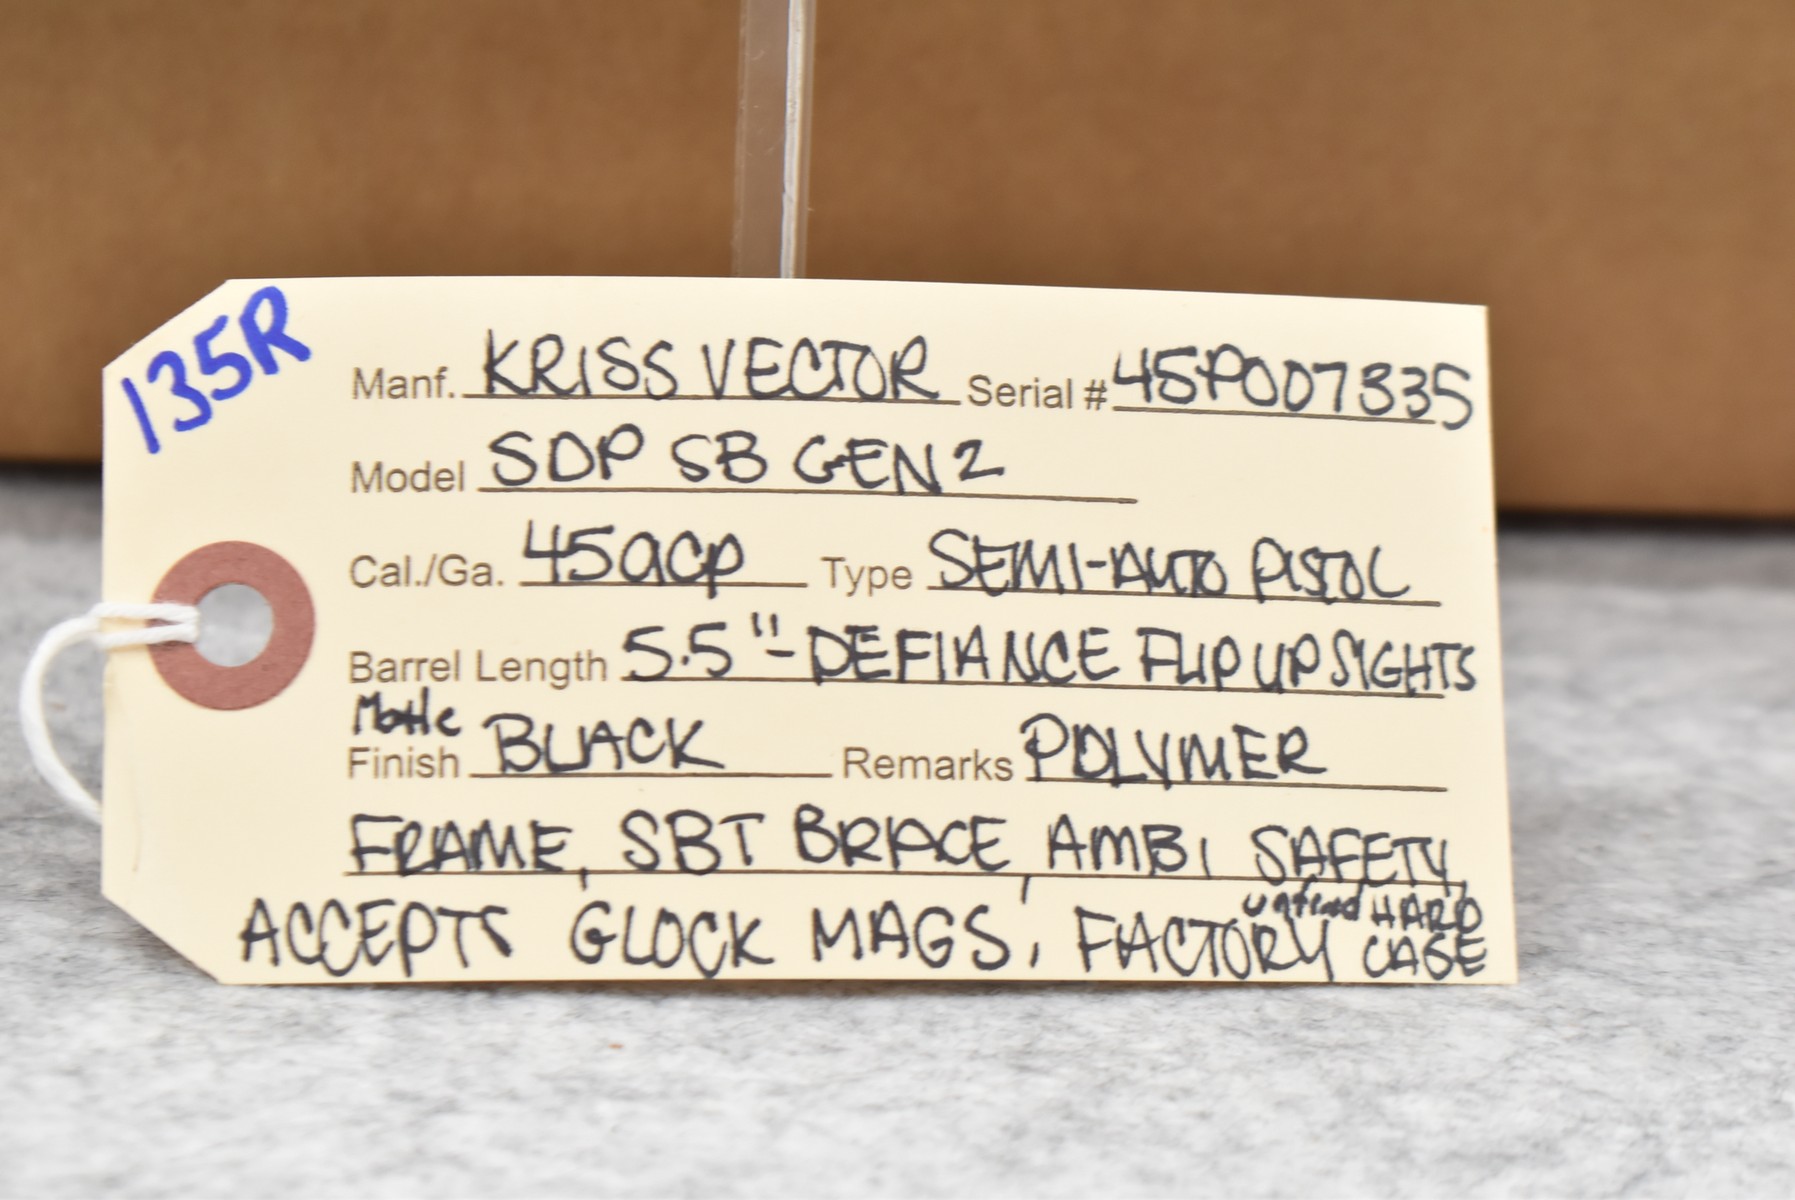 135R
Manf. KRISS VECTOR Serial # 45P007335
Model SDP SB GEN 2
Cal./Ga. 45acp Type SEMI-AUTO PISTOL
Barrel Length 5.5"- DEFIANCE FLIP UP SIGHTS
Matte
Finish BLACK Remarks POLYMER
FRAME, SBT BRACE, AMBI SAFETY,
ACCEPTS GLOCK MAGS, FACTORY HARD CASE